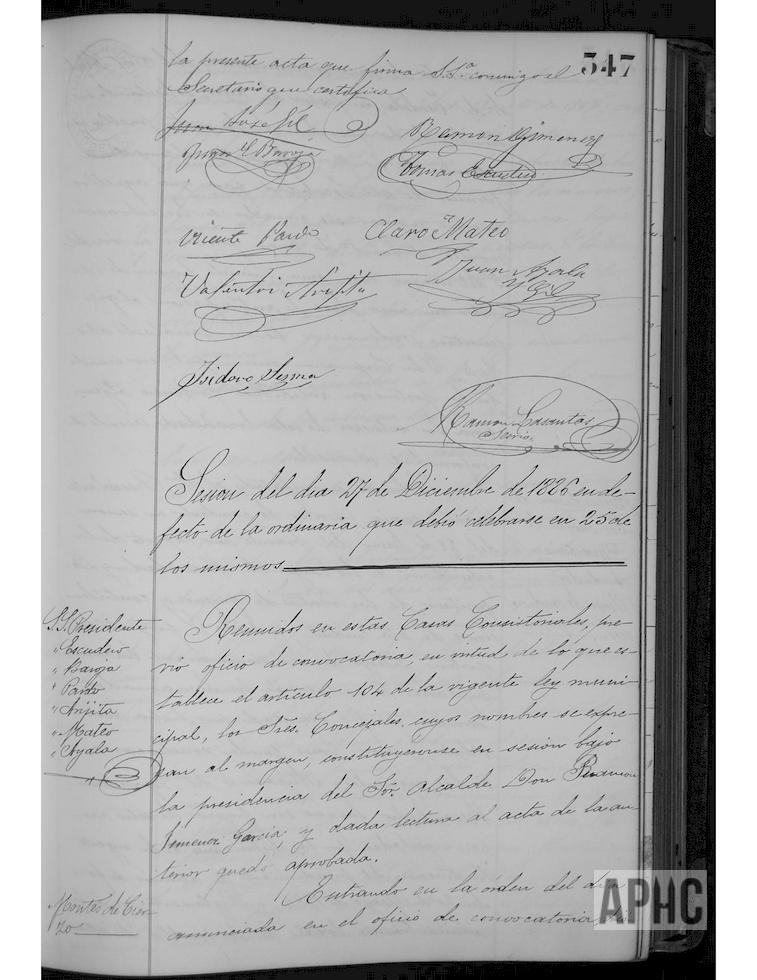 347
la presente acta que firma S.Sª. conmigo el
Secretario que certifica
Juan José Gil
Ramon Gimenez
Juan E. Baroja
Tomas Escudero
Vicente Pardo
Claro Mateo
Valentin Arijita
Juan Ayala
y Gil
Isidoro Sesma
Ramon Casautos
Secrio.
Sesion del dia 27 de Diciembre de 1886 en de-
fecto de la ordinaria que debió celebrarse en 25 de
los mismos
S.S. Presidente
" Escudero
" Baroja
" Pardo
" Arijita
" Mateo
" Ayala
Reunidos en estas Casas Consistoriales, pre-
vio oficio de convocatoria, en virtud de lo que es-
tablece el artículo 104 de la vigente ley muni-
cipal, los Sres. Concejales, cuyos nombres se expre-
san al margen, constituyeronse en sesión bajo
la presidencia del Sor. Alcalde Don Ramon
Jimenez Garcia y dada lectura al acta de la an-
terior quedó aprobada.
Montes de Cier-
zo
Entrando en la órden del dia
anunciada en el oficio de convocatoria
APHC